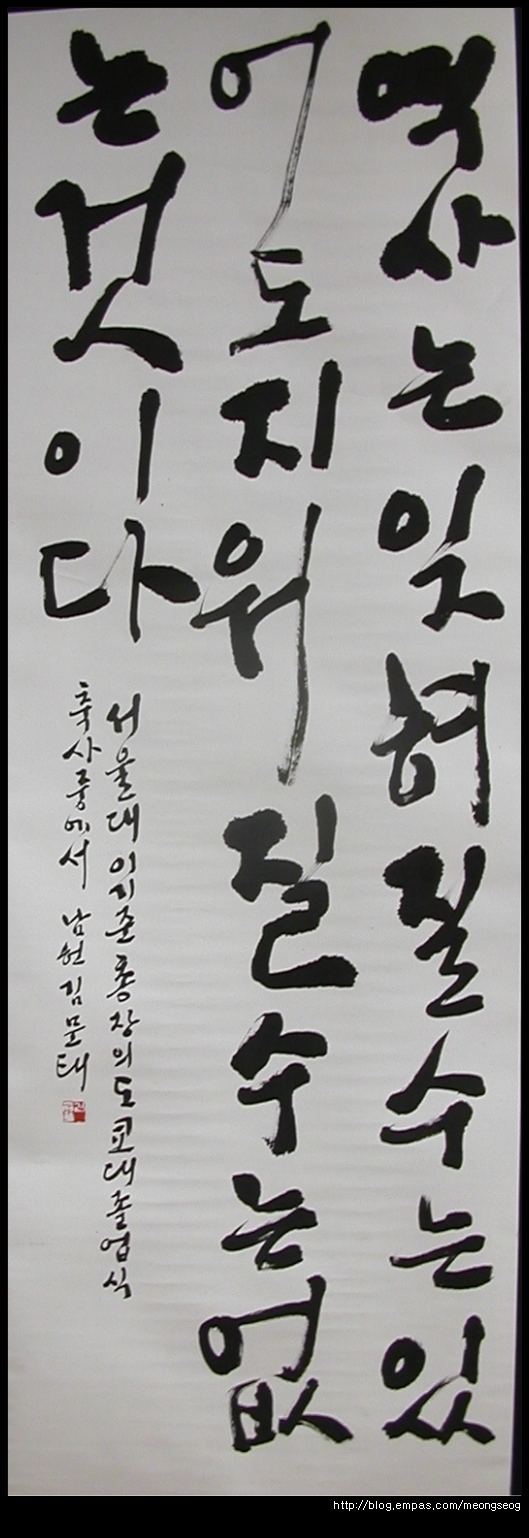 역사는 잊혀질 수는 있
어도 지워질 수는 없
는 것이다
서울대 이기준 총장의 도쿄대 졸업식
축사 중에서 남헌 김문태
http://blog.empas.com/meongseog